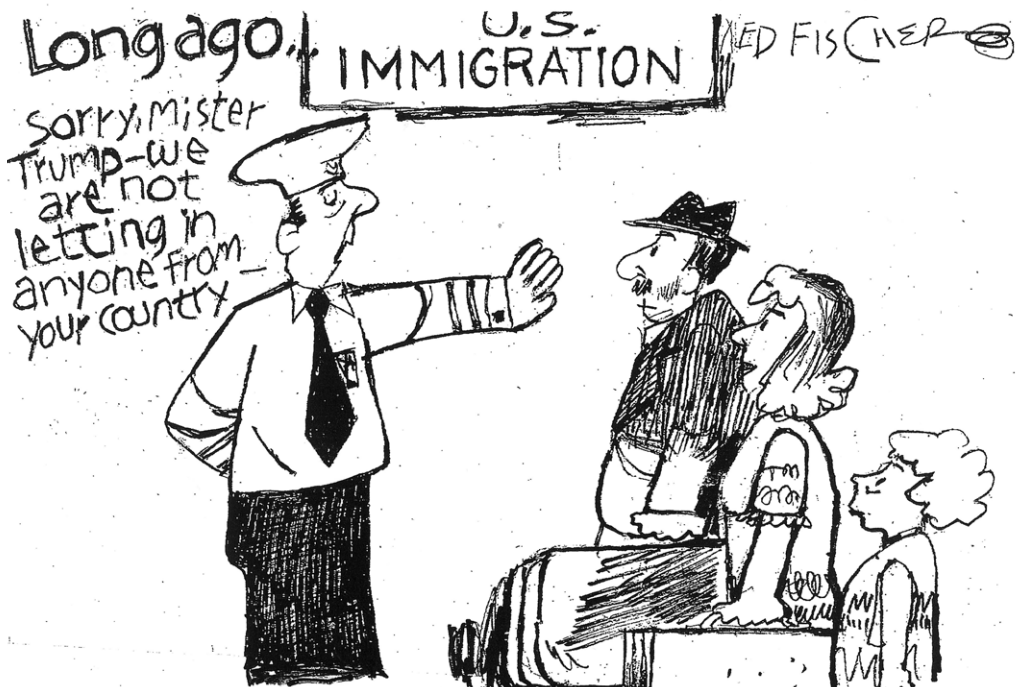 Long ago...
U.S.
IMMIGRATION
ED FISCHER
Sorry, Mister
Trump—we
are not
letting in
anyone from
your country—